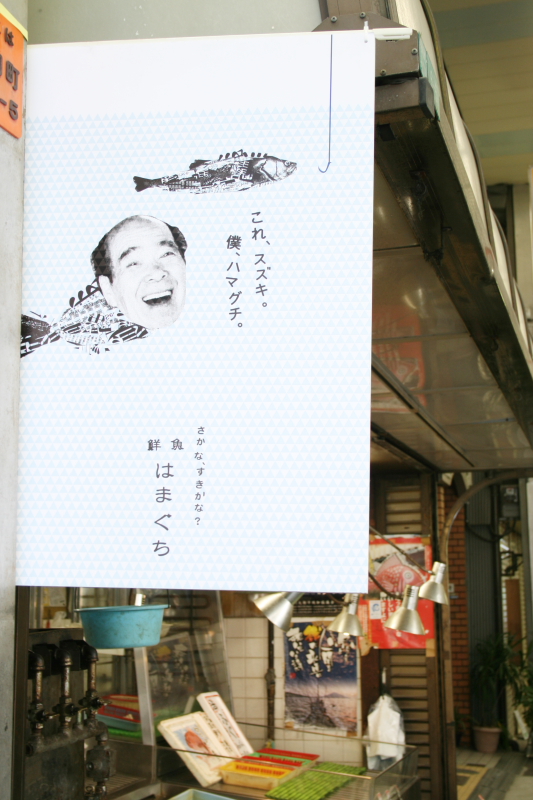 これ、スズキ。
僕、ハマグチ。
さかな、すきかな?
鮮魚
はまぐち
町
-5